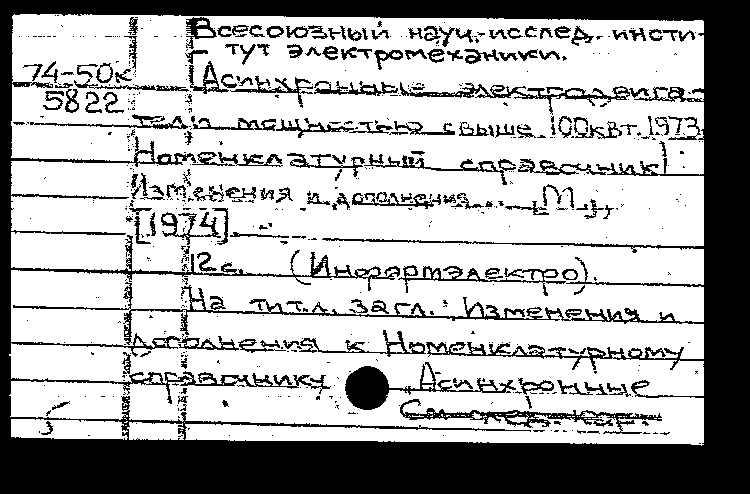 Всесоюзный науч.-исслед. инсти-
тут электромеханики.
74-50к
5822
Асинхронные электродвига-
тели мощностью свыше 100квт. 1973
(Номенклатурный справочник)
Изменения и дополнения... [М.],
[1974].
12с. (Информэлектро).
На тит.л. загл.: Изменения и
дополнения к Номенклатурному
справочнику „Асинхронные
См. след. кар.
5